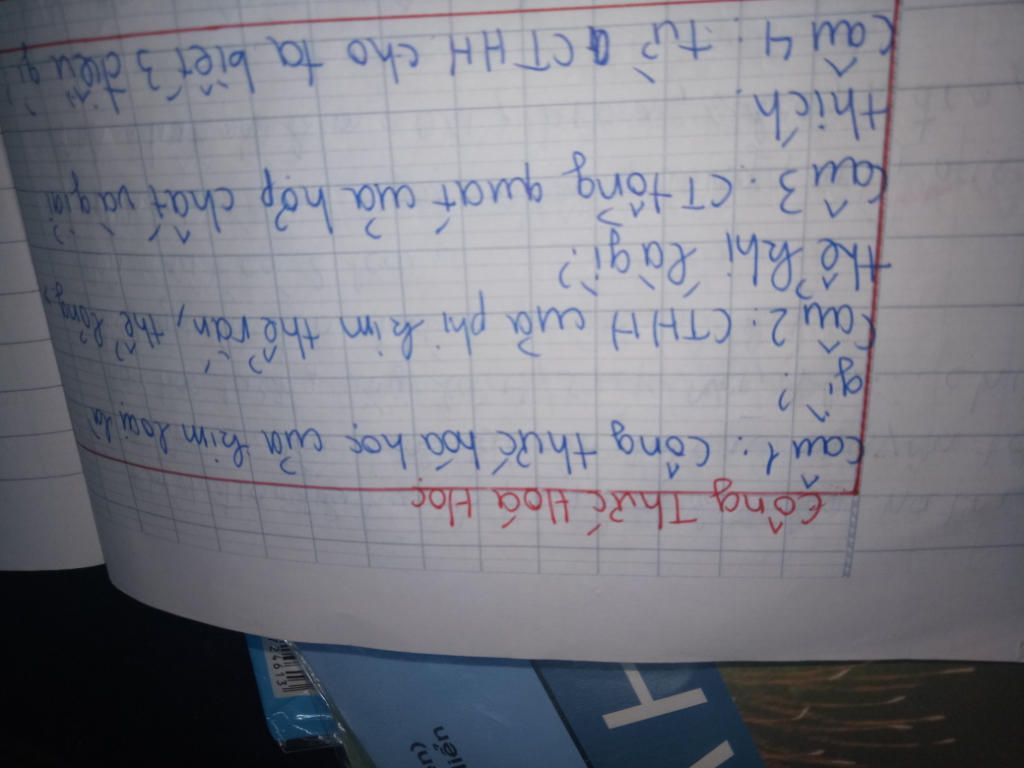 Công Thức Hoá Học
Câu 1: Công thức hóa học của kim loại là
gì ?
Câu 2: CTHH của phi kim thể rắn, thể lỏng,
thể khí là gì?
Câu 3: CT tổng quát của hợp chất và giải
thích.
Câu 4: từ CTHH cho ta biết 3 điều gì
H
iện
en)
24613